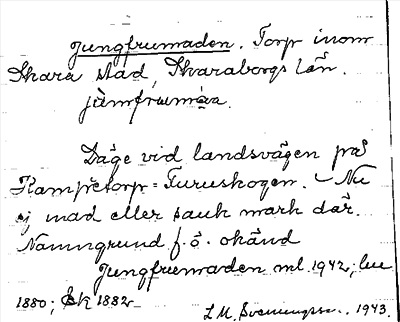 Jungfrumaden. Torp inom
Skara stad, Skaraborgs län.
jùmfrúmáa
Läge vid landsvägen på
Kampetorp = Furuskogen. Nu
ej mad eller sank mark där.
Namngrund f. ö. okänd
Jungfrumaden ml. 1942;
1880; Ek 1882
L. M. Svenungsson. 1943.